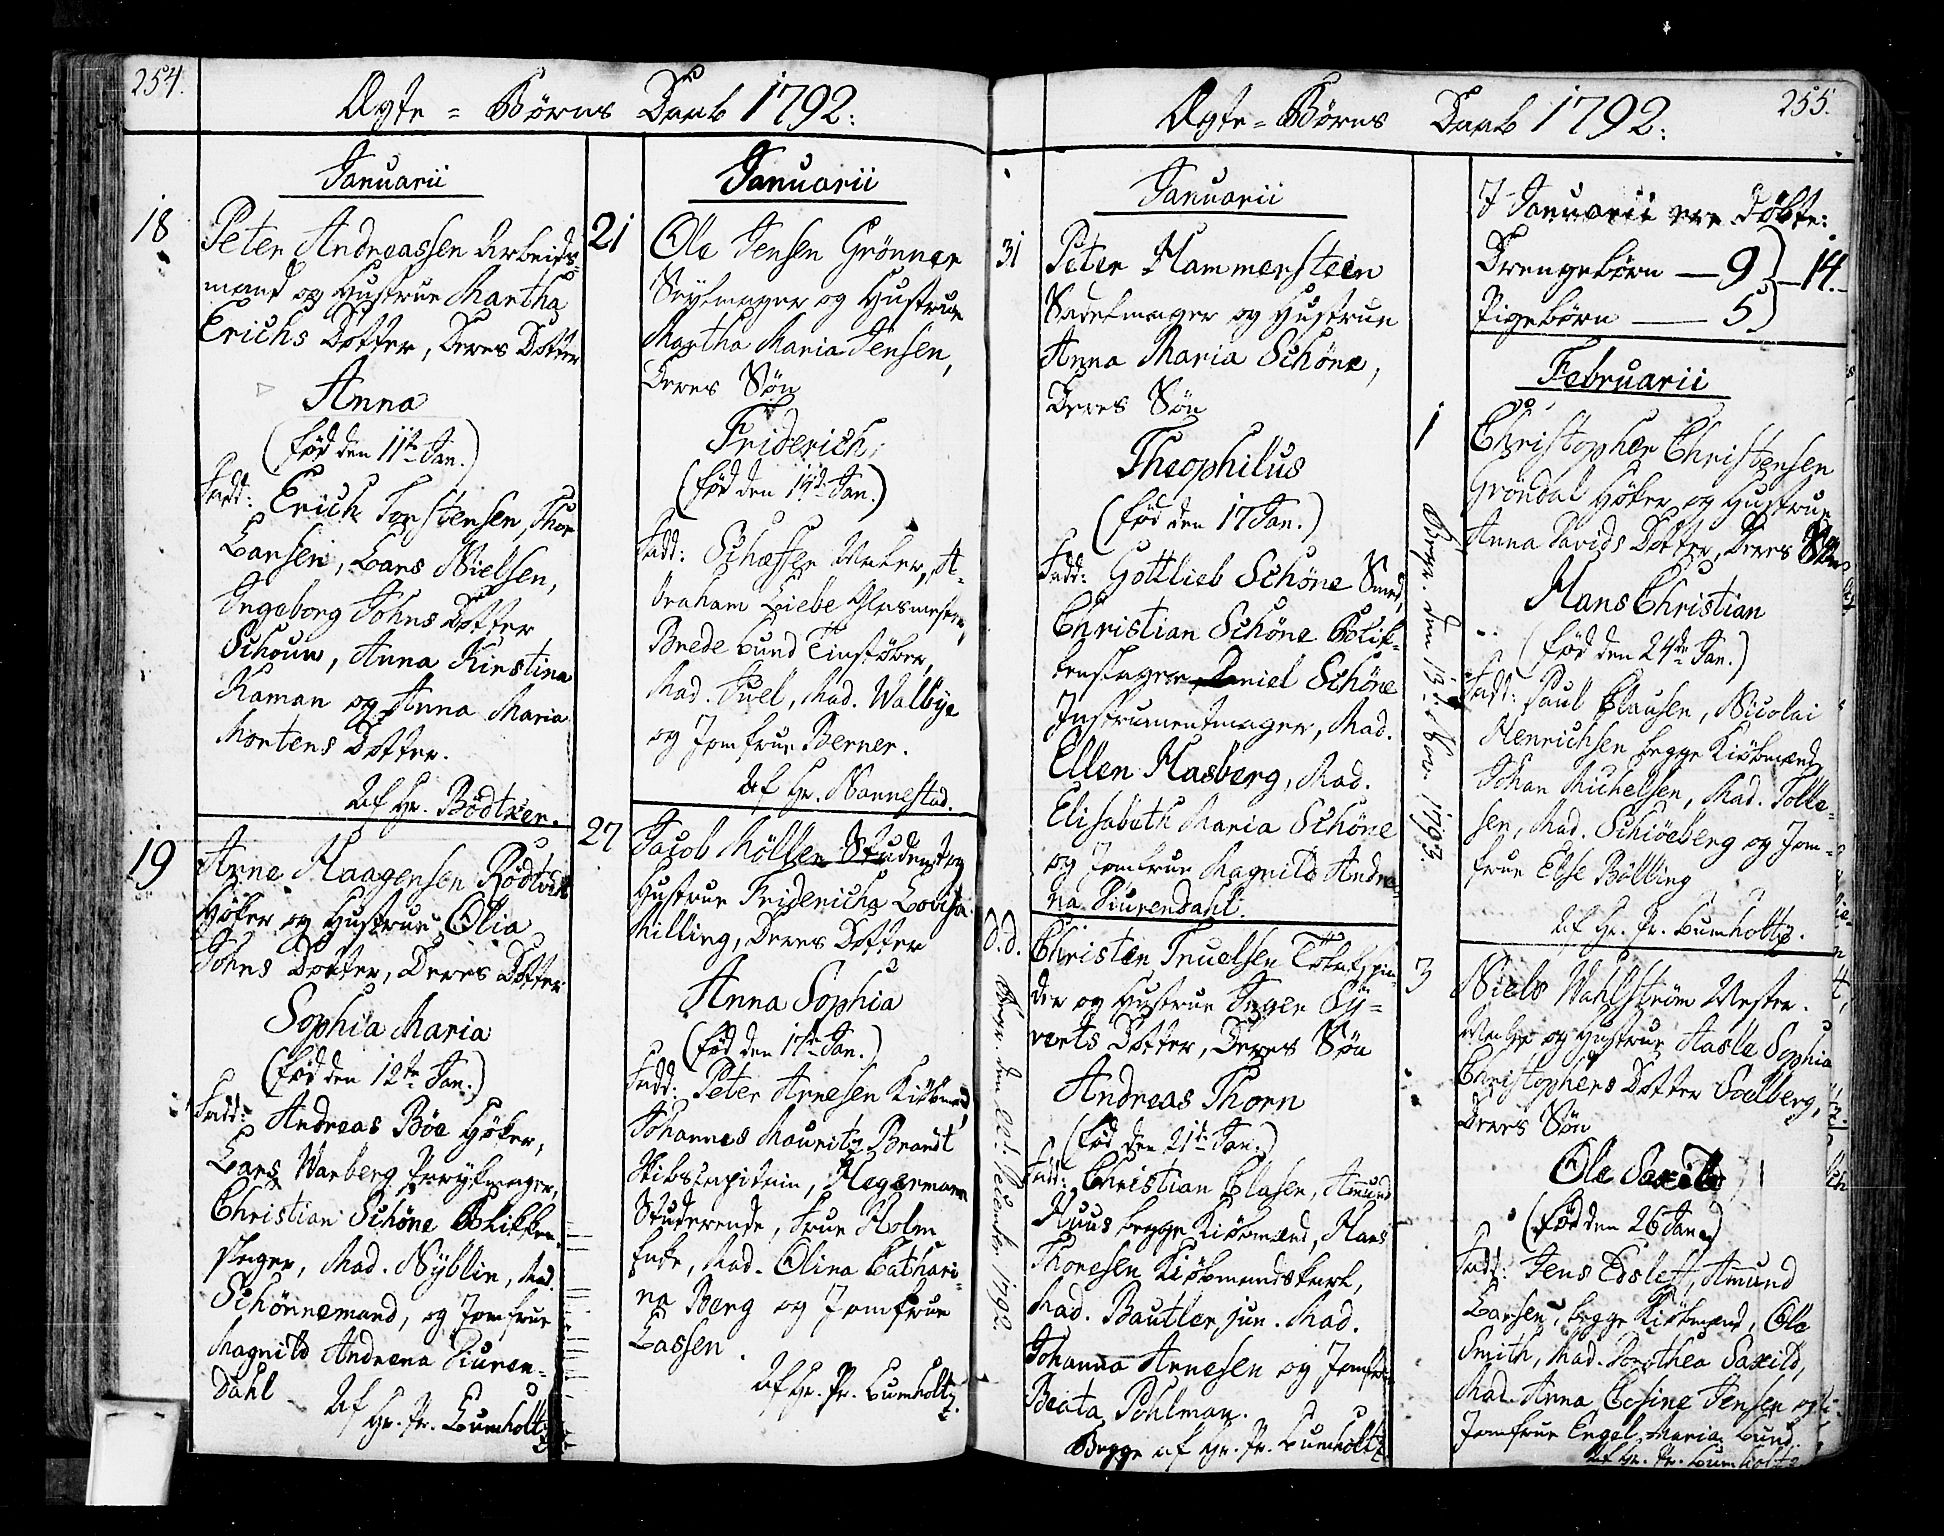 254.
Ægte = Børns Daab 1792:
Januarii
18
Peter Andreassen Arbeids-
mand og Hustrue Martha
Erichs Dotter, Deres Dotter
Anna
(fød den 11te Jan.)
Fadd: Erich Torstensen, Thor
Larsen, Lars Nielsen,
Ingeborg Johns Dotter
Schouw, Anna Kirstina
Kaman og Anna Maria
Mortens Dotter.
Af Hr. Bødtker.
19
Arne Haagensen Rødtvit
Høker og Hustrue Olia
Johns Dotter, Deres Dotter
Sophia Maria
(fød den 12te Jan.)
Fadd: Andreas Böe Høker,
Lars Warberg Perrykmager,
Christian Schöne Blikken-
slager, Mad. Nÿblin, Mad.
Schönnemand, og Jomfrue
Magnild Andrea Biuren-
dahl
Af
Hr. Pr. Lumholtz
Januarii
21
Ole Jensen Grönner
Seylmager og Hustrue
Martha Maria Jensen,
Deres Søn
Friderich,
(fød den 14de Jan.)
Fadd: Schæffer Maler, A-
braham Liebe Glasmester,
Brede Lund Tinstøber,
Mad. Juel, Mad. Walbye
og Jomfrue Berner.
Af Hr. Nannestad.
27
Jacob Möller Student og
Hustrue Friderica Lovisa
Milling, Deres Dotter
Anna Sophia
(fød den 17de Jan.)
Fadd: Peter Arnesen Kiøbmand,
Johannes Mauritz Brandt
Skibscapitain, Hegermann
Studerende, Frue Holm
Enke, Mad. Olina Cathari-
na Berg og Jomfrue
Lassen.
Af Hr. Pr. Lumholtz.
255.
Ægte = Børns Daab 1792:
Januarii
31
Peter Hammersteen
Sadelmager og Hustrue
Anna Maria Schöne,
Deres Søn
Theophilus
(fød den 17 Jan.)
Fadd: Gottlieb Schöne Smed,
Christian Schöne Blik-
kenslager, Daniel Schöne
Instrumentmager, Mad.
Ellen Hasberg, Mad.
Elisabeth Maria Schöne
og Jomfrue Magnild Andre-
na Biurendahl.
d.d.
Christen Truelsen Tobakspin-
der og Hustrue Inger Sÿ-
verts Dotter, Deres Søn
Andreas Thorn
(fød den 21de Jan.)
Fadd: Christian Clasen, Amund
Ruus begge Kiøbmænd, Hans
Thoresen Kiøbmandskarl,
Mad. Bautler jun. Mad.
Johanna Arnesen og Jomfrue
Beata Pohlman.
Begge af Hr. Pr. Lumholtz
Begr. den December 1792.
I Januarii ere døbte:
Drengebørn — 9
14.
Pigebørn — 5
Februarii
1
Christopher Christensen
Gröndal Høker og Hustrue
Anna Davids Dotter, Deres Søn
Hans Christian
(fød den 24de Jan.)
Fadd: Paul Clausen, Nicolai
Henrichsen begge Kiøbmænd,
Johan Michelsen, Mad. Tolle-
sen, Mad. Schiöeberg og Jom-
frue Else Bölling
Af Hr. Pr. Lumholtz.
Begr. den 13 Nov. 1793.
3
Niels Wahlström Mester-
Maler og Hustrue Hasle Sophia
Christophers Dotter Soelberg,
Deres Søn
Ole Saxild
(fød den 26 Jan.)
Fadd: Jens Edslef, Amund
Larsen, begge Kiøbmænd, Ole
Smith, Mad. Dorothea Saxild,
Mad. Anna Cosine Jensen og
Jomfrue Engel Maria Lund.
Af Hr. Pr. Lumholtz